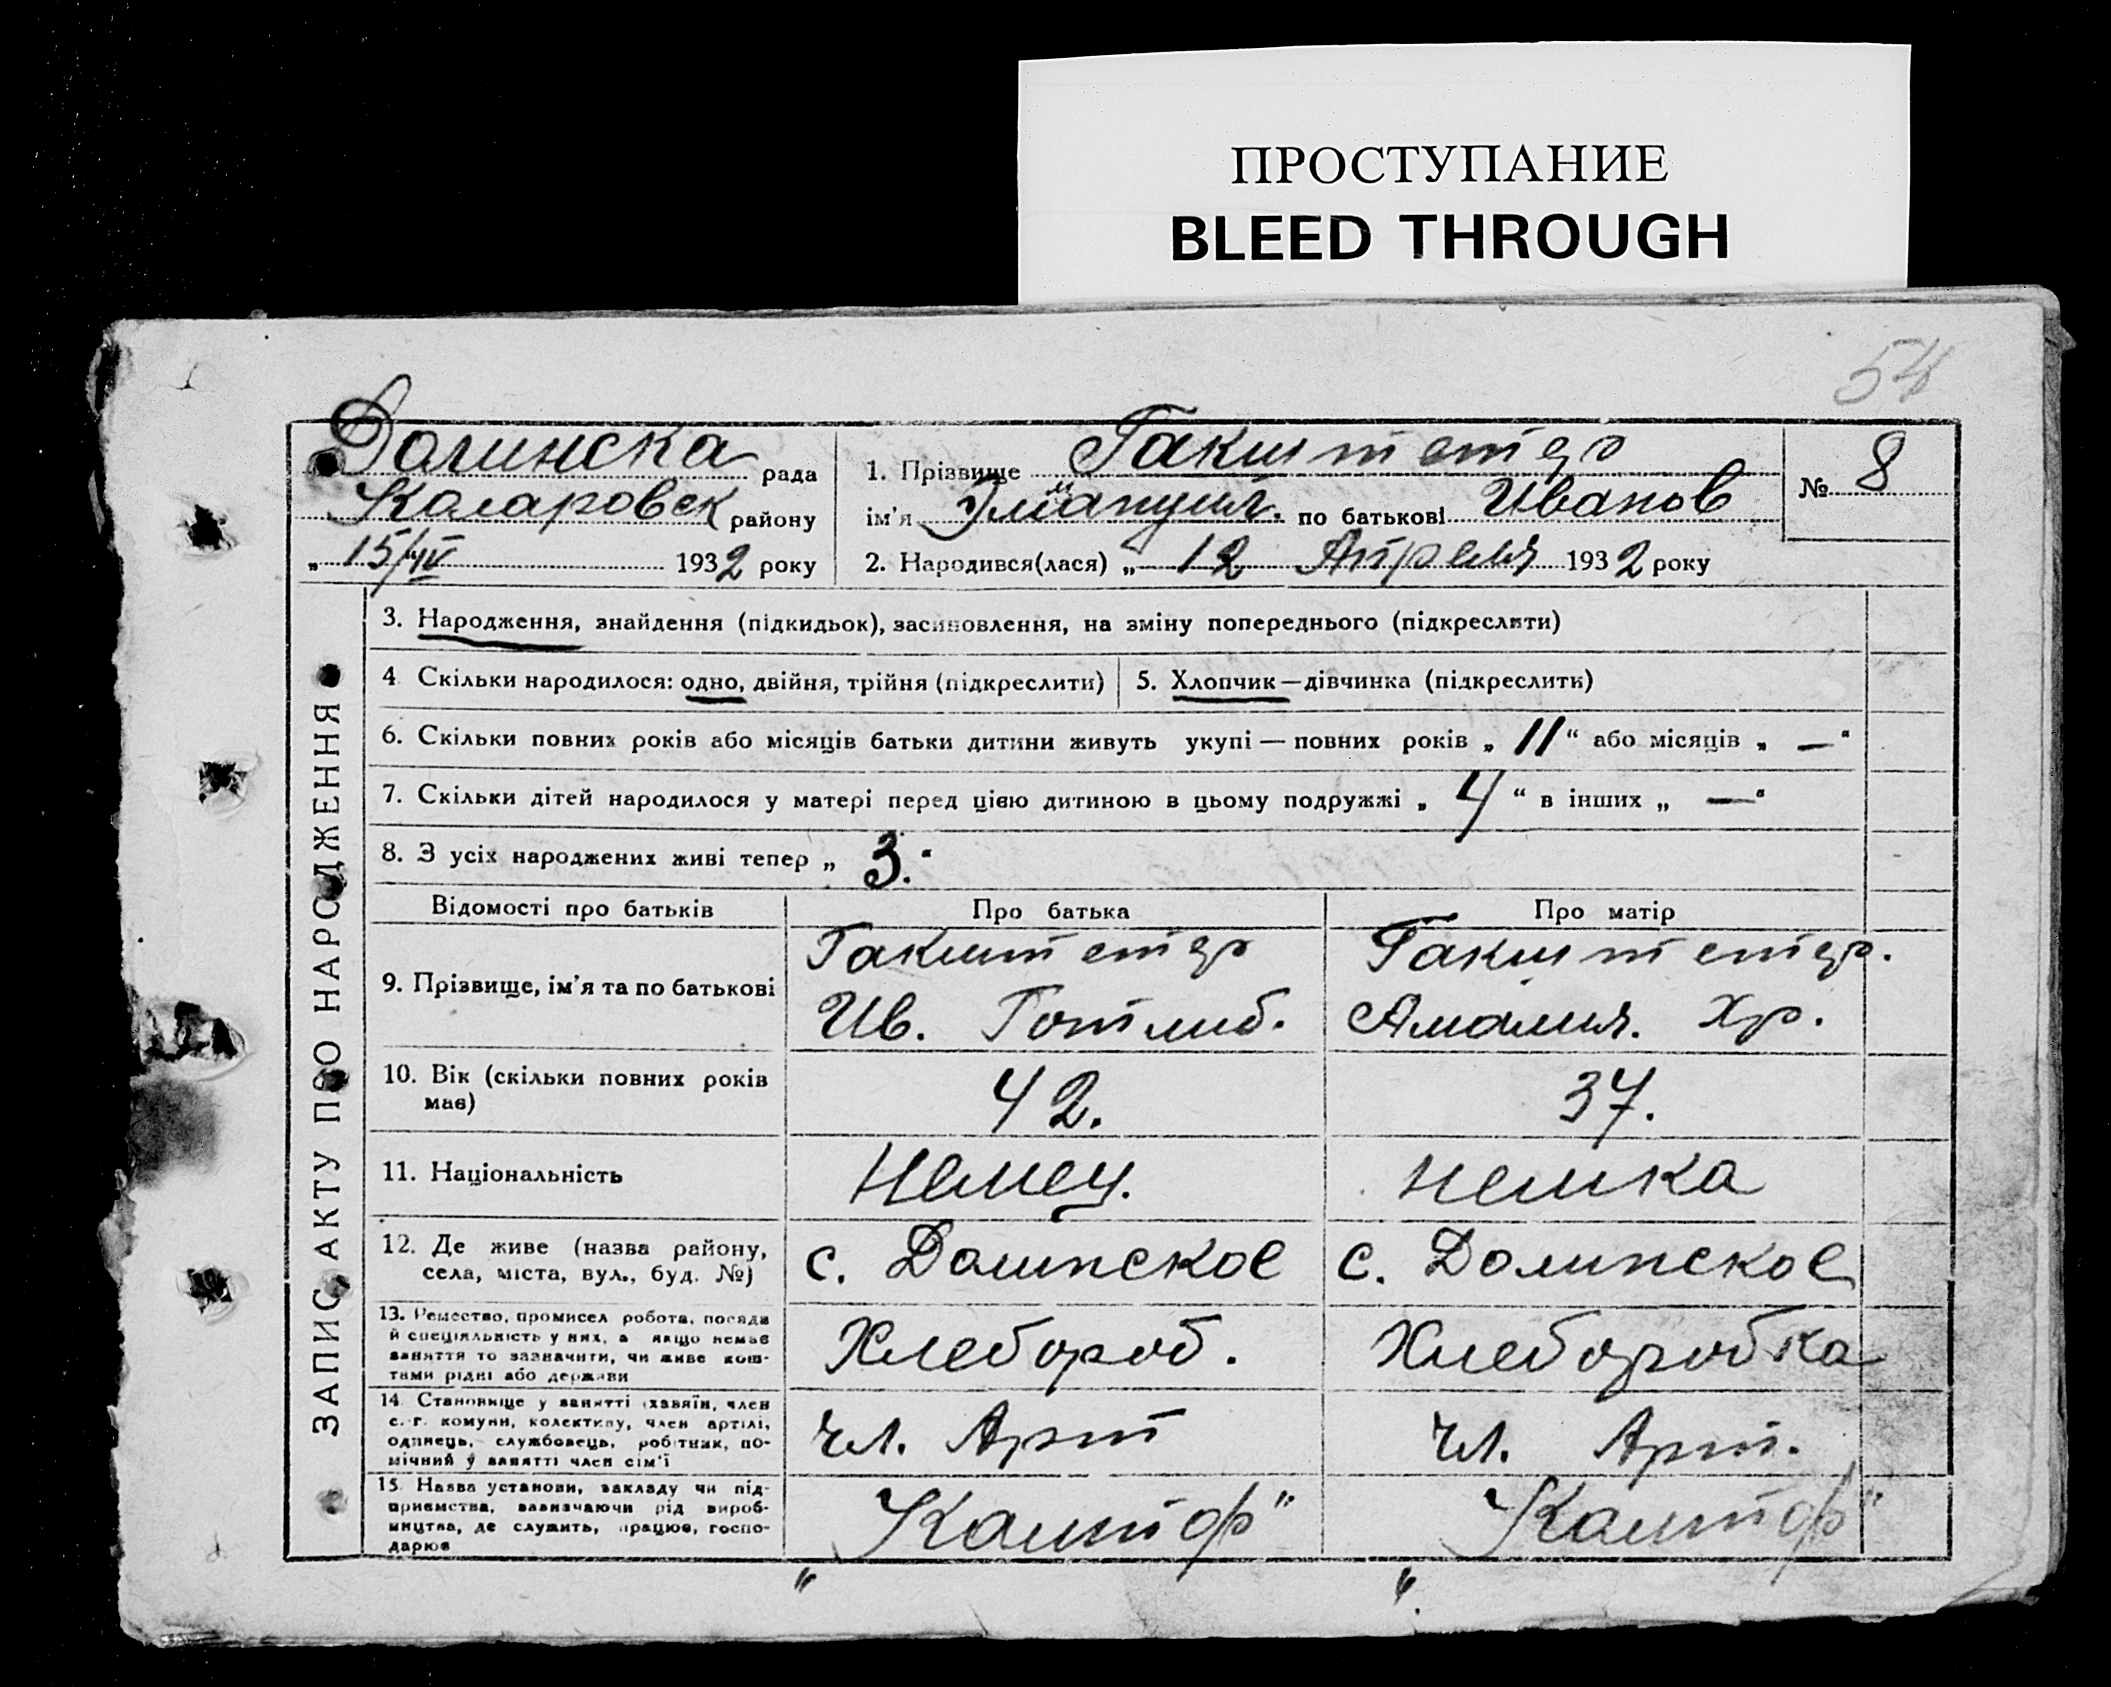 ПРОСТУПАНИЕ
BLEED THROUGH
54
Долинска рада
Коларовск району
„ 15/IV 1932 року
1. Прізвище Гакштетер
ім'я Эмануил. по батькові Иванов
№ 8
2. Народився(лася) „ 12 Апреля 1932 року
ЗАПИС АКТУ ПРО НАРОДЖЕННЯ
3. Народження, знайдення (підкидьок), засиновлення, на зміну попереднього (підкреслити)
4 Скільки народилося: одно, двійня, трійня (підкреслити)
5. Хлопчик—дівчинка (підкреслити)
6. Скільки повних років або місяців батьки дитини живуть укупі — повних років „ 11 “ або місяців „ — “
7. Скільки дітей народилося у матері перед цією дитиною в цьому подружжі „ 4 “ в інших „ — “
8. З усіх народжених живі тепер „ 3. “
Відомості про батьків
Про батька
Про матір
9. Прізвище, ім'я та по батькові
Гакштетер
Ив. Готлиб.
Гакштетер.
Амалия. Хр.
10. Вік (скільки повних років
має)
42.
37.
11. Національність
Немец.
немка
12. Де живе (назва району,
села, міста, вул., буд. №)
с. Долинское
с. Долинское
13. Ремество, промисел робота, посада
й спеціяльність у них, а якщо немає
заняття то зазначити, чи живе кош-
тами рідні або держави
Хлебороб.
Хлеборобка
14. Становище у занятті (хазяїн, член
с.-г. комуни, колективу, член артілі,
одинець, службовець, робітник, по-
мічний у занятті член сім'ї
чл. Арт
чл. Арт.
15. Назва установи, закладу чи під-
приємства, зазначаючи рід вироб-
ництва, де служить, працює, госпо-
дарює
„Кампф"
„Кампф"